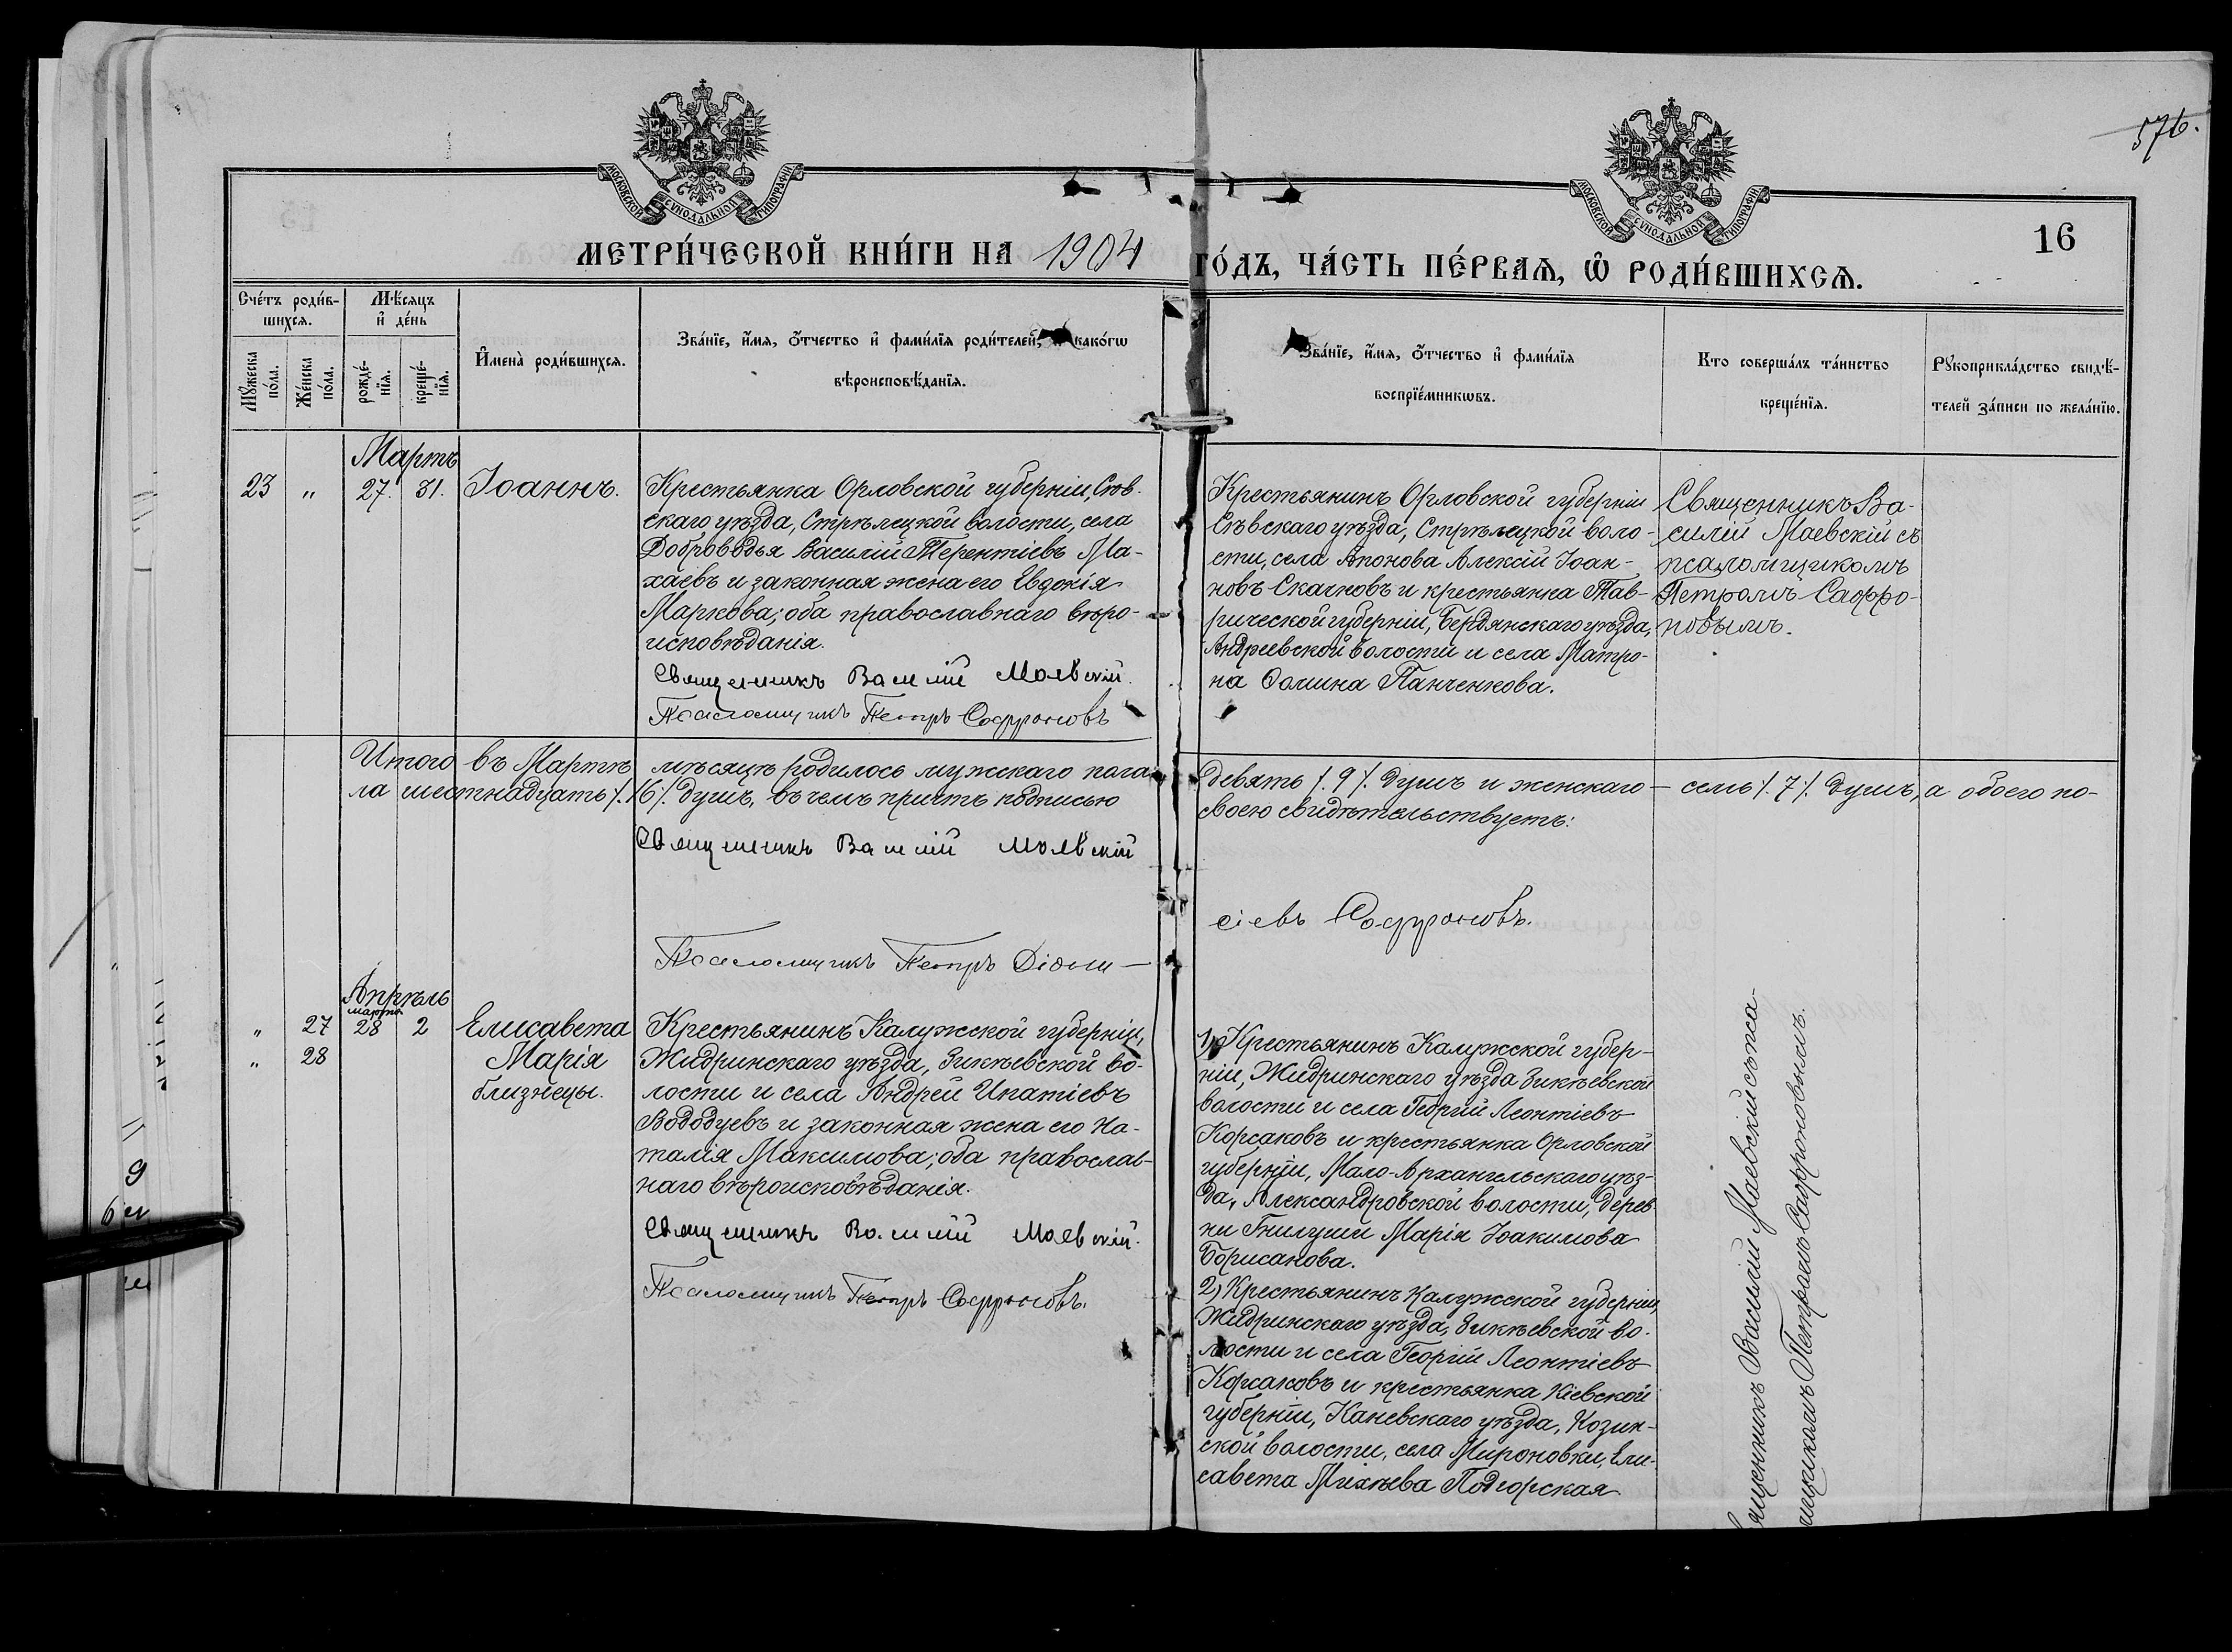 576.
МОСКОВСКОЙ СѴНОДАЛЬНОЙ ТИПОГРАФІИ.
МОСКОВСКОЙ СѴНОДАЛЬНОЙ ТИПОГРАФІИ.
16
МЕТРИ́ЧЕСКОЙ КНИ́ГИ НА 1904 ГО́ДЪ, ЧА́СТЬ ПЕ́РВАѦ, Ѡ҆ РОДИ́ВШИХСѦ.
Сче́тъ роди́в-
шихсѧ.
Мꙋ́жеска по́ла.
Же́нска по́ла.
Мѣ́сѧцъ
и҆ де́нь
рожде́-
нїѧ.
креще́-
нїѧ.
И҆мена̀ роди́вшихсѧ.
Зва́нїе, и҆́мѧ, ѻ҆́тчество и҆ фами́лїѧ роди́телей, како́гѡ
вѣроисповѣ́данїѧ.
Зва́нїе, и҆́мѧ, ѻ҆́тчество и҆ фами́лїѧ
воспрїе́мникѡвъ.
Кто соверша́лъ та́инство
креще́нїѧ.
Рꙋкоприкла́дство свидѣ́-
телей за́писи по жела́нїю.
Мартъ
23 " 27. 31. Іоаннъ.
Крестьянка Орловской губерніи, Сѣв-
скаго уѣзда, Стрѣлецкой волости, села
Доброводья Василій Терентіевъ Ма-
хаевъ и законная жена его Евдокія
Маркова; оба православнаго вѣро-
исповѣданія.
Священникъ Василій Маевскій.
Псаломщикъ Петръ Софроновъ
Крестьянинъ Орловской губерніи
Сѣвскаго уѣзда, Стрѣлецкой воло-
сти, села Апонова Алексій Іоан-
новъ Скачковъ и крестьянка Тав-
рической губерніи, Бердянскаго уѣзда,
Андреевской волости и села Матро-
на Ѳомина Панченкова.
Священникъ Ва-
силій Маевскій съ
псаломщикомъ
Петромъ Софро-
новымъ.
Итого въ Мартѣ мѣсяцѣ родилось мужскаго пола Девять /. 9 /. душъ и женскаго — семь /. 7 /. душъ, а обоего по-
ла шестнадцать /. 16 /. душъ, въ чемъ причтъ подписью своею свидѣтельствуетъ:
Священникъ Василій Маевскій
Псаломщикъ Петръ Діони-
сіевъ Софроновъ.
Апрѣль
марта
" 27 28 2 Елисавета
" 28 Марія
близнецы.
Крестьянинъ Калужской губерніи,
Жиздринскаго уѣзда, Зикѣевской во-
лости и села Андрей Ипатіевъ
Вододуевъ и законная жена его На-
талія Максимова; оба православ-
наго вѣроисповѣданія.
Священникъ Василій Маевскій.
Псаломщикъ Петръ Софроновъ.
1) Крестьянинъ Калужской губер-
ніи, Жиздринскаго уѣзда Зикѣевской
волости и села Георгій Леонтіевъ
Корсаковъ и крестьянка Орловской
губерніи, Мало-Архангельскаго уѣз-
да, Александровской волости, дерев-
ни Гнилуши Марія Іоакимова
Борисанова.
2) Крестьянинъ Калужской губерніи,
Жиздринскаго уѣзда, Зикѣевской во-
лости и села Георгій Леонтіевъ
Корсаковъ и крестьянка Кіевской
губерніи, Каневскаго уѣзда, Козин-
ской волости, села Мироновки, Ели-
савета Михѣева Подгорская
Священникъ Василій Маевскій съ пса-
ломщикомъ Петромъ Софроновымъ.